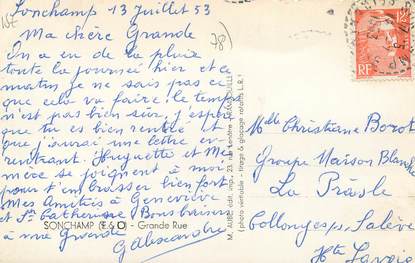 Sonchamp 13 Juillet 53
78)
Ma chère Grande
On a eu de la pluie
toute la journée hier et ce
matin je ne sais pas ce
que cela va faire. le temps
n'est pas bien sur, j'espère
que tu es bien rentrée et
que j'aurai une lettre en
rentrant. Huguette et Mé-
mère se joignent à moi
pour t'embrasser bien fort
Mes Amitiés à Geneviève
et Ste Catherine Bons baisers
à ma Grande
SONCHAMP (S & O) - Grande Rue
M. AUBE édit. imp., 23, rue Lenôtre, RAMBOUILLET
(photo véritable - tirage & glaçage rotatifs L.R.)
RF
12F
Mlle Christiane Borot
Groupe Maison Blanche
La Praole
Collonges s/ Salève
Hte Savoie